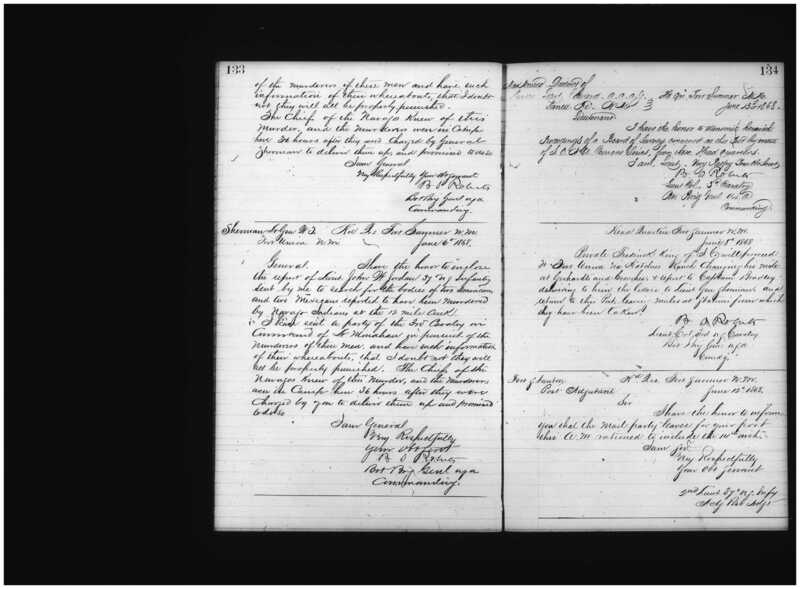 133
of the murderers of these men and have such
information of their whereabouts, that I doubt
not they will all be properly punished.
The Chief of the Navajo Knew of this
Murder, and the murderers were in Camp
here 36 hours after they were Charged by General
Sherman to deliver them up, and promised to do so
I am General
Very Respectfully Your Obt servant
B. S. Roberts
Bvt Brig Genl U.S.A
Commanding.
Sherman Lt Gen W. T.
Fort Union N. M.
Hd Qrs Fort Sumner N. M.
June 6th 1868.
General. I have the honor to enclose
the report of Lieut. John W Jordan 37 U.S. Infantry
sent by me to search for the bodies of two Americans
and two Mexicans reported to have been murdered
by Navajo Indians at the 12 mile Creek.
I have sent a party of the 3rd Cavalry in
Command of Lt Monahan in pursuit of the
Murderers of these men, and have such information
of their whereabouts, that I doubt not they will
all be properly punished. The Chiefs of the
Navajos Knew of this Murder, and the Murderers
were in Camp here 36 hours after they were
Charged by you to deliver them up and promised
to do so
I am General
Very Respectfully
Your Obt Servt
B. S. Roberts
Bvt Brig Genl U.S.A
Commanding.
134
Hd Qrs Fort Sumner N. M.
June 1868.
Lieutenant
I have the honor to transmit herewith
Proceedings of a Board of Survey convened at this Post
I am, Very Respy Your Obt Servt
B. S. Roberts
Lieut Col. 3rd Cavalry
Bvt Brig Genl U.S.A
Commanding
Head Quarters Fort Sumner N. M.
June 1868
Private Frederick of I Co will proceed
to Fort Union
at and report to Captain
delivering to him the letter to Lieut Gen Sherman and
return to this Post leaving mules at Stations from which
they have been taken.
B. S. Roberts
Lieut Col 3rd U.S. Cavalry
Bvt Brig Gen U.S.A
Comdg.
Post Adjutant
Hd Qrs Fort Sumner N. M.
June 12th 1868.
Sir
I have the honor to inform
you that the Mail party leaves for your post
this A. M. rationed to include the 14th inst.
I am Sir
Very Respectfully
Your Obt Servant
2nd Lieut 37th U.S. Infy
Post Adjt